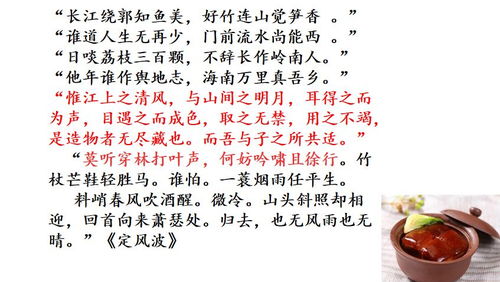 “长江绕郭知鱼美，好竹连山觉笋香 。”
“谁道人生无再少，门前流水尚能西 。”
“日啖荔枝三百颗，不辞长作岭南人。”
“他年谁作舆地志，海南万里真吾乡。”
“惟江上之清风，与山间之明月，耳得之而
为声，目遇之而成色，取之无禁，用之不竭，
是造物者无尽藏也。而吾与子之所共适。”
“莫听穿林打叶声，何妨吟啸且徐行。竹
杖芒鞋轻胜马。谁怕。一蓑烟雨任平生。
料峭春风吹酒醒。微冷。山头斜照却相
迎，回首向来萧瑟处。归去，也无风雨也无
晴。”《定风波》